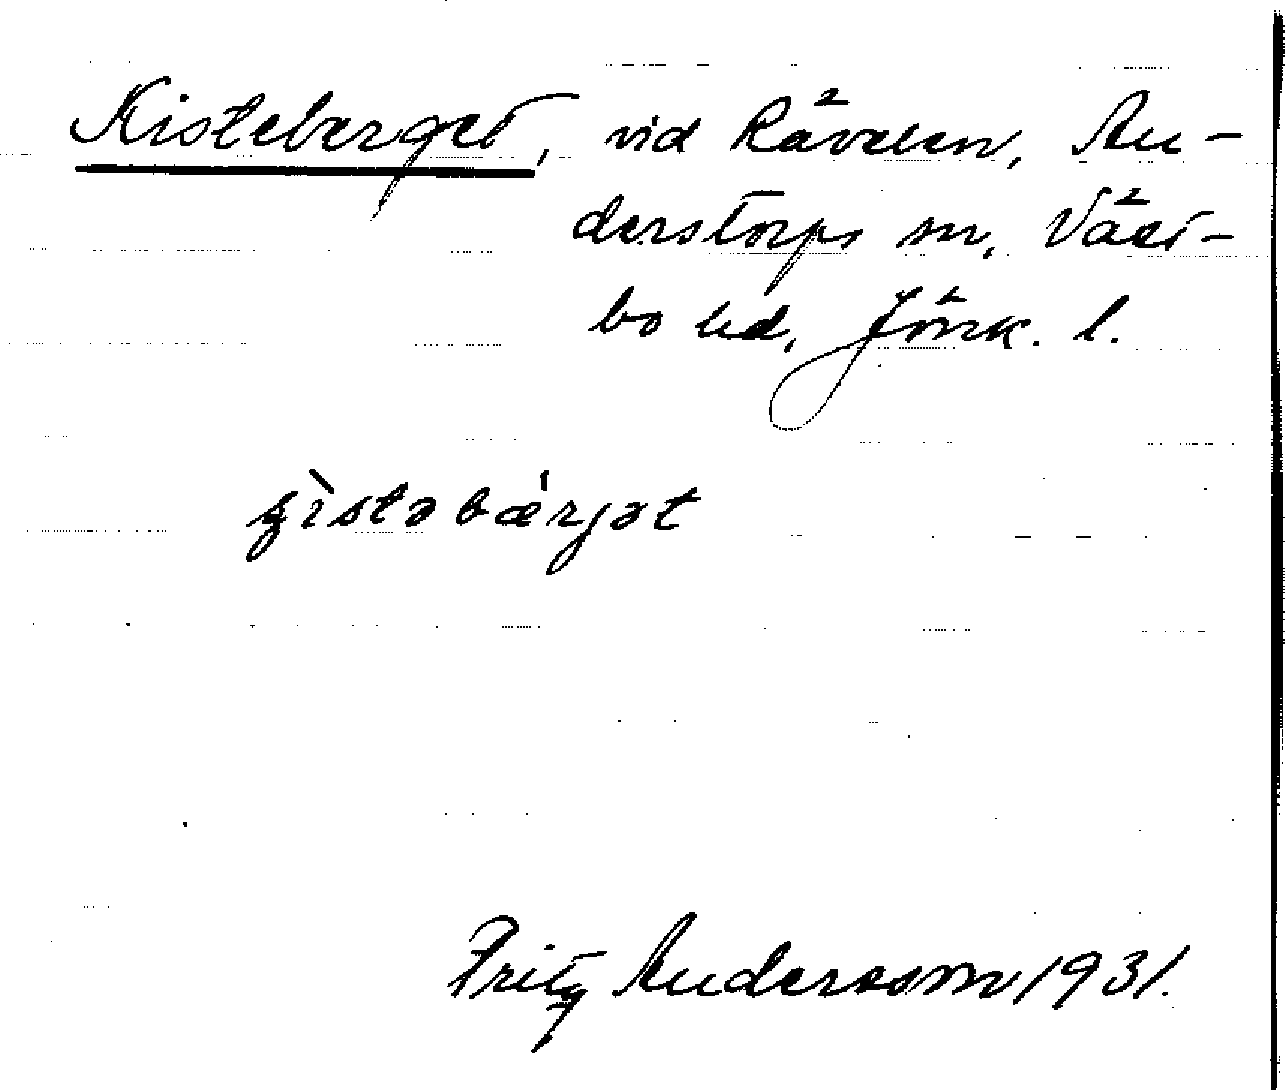 Kisteberget, vid Rävelen, An-
derstorps sn, Väst-
bo hd, Jönk. l.
ʂìstəbǽrjət
Fritz Andersson 1931.